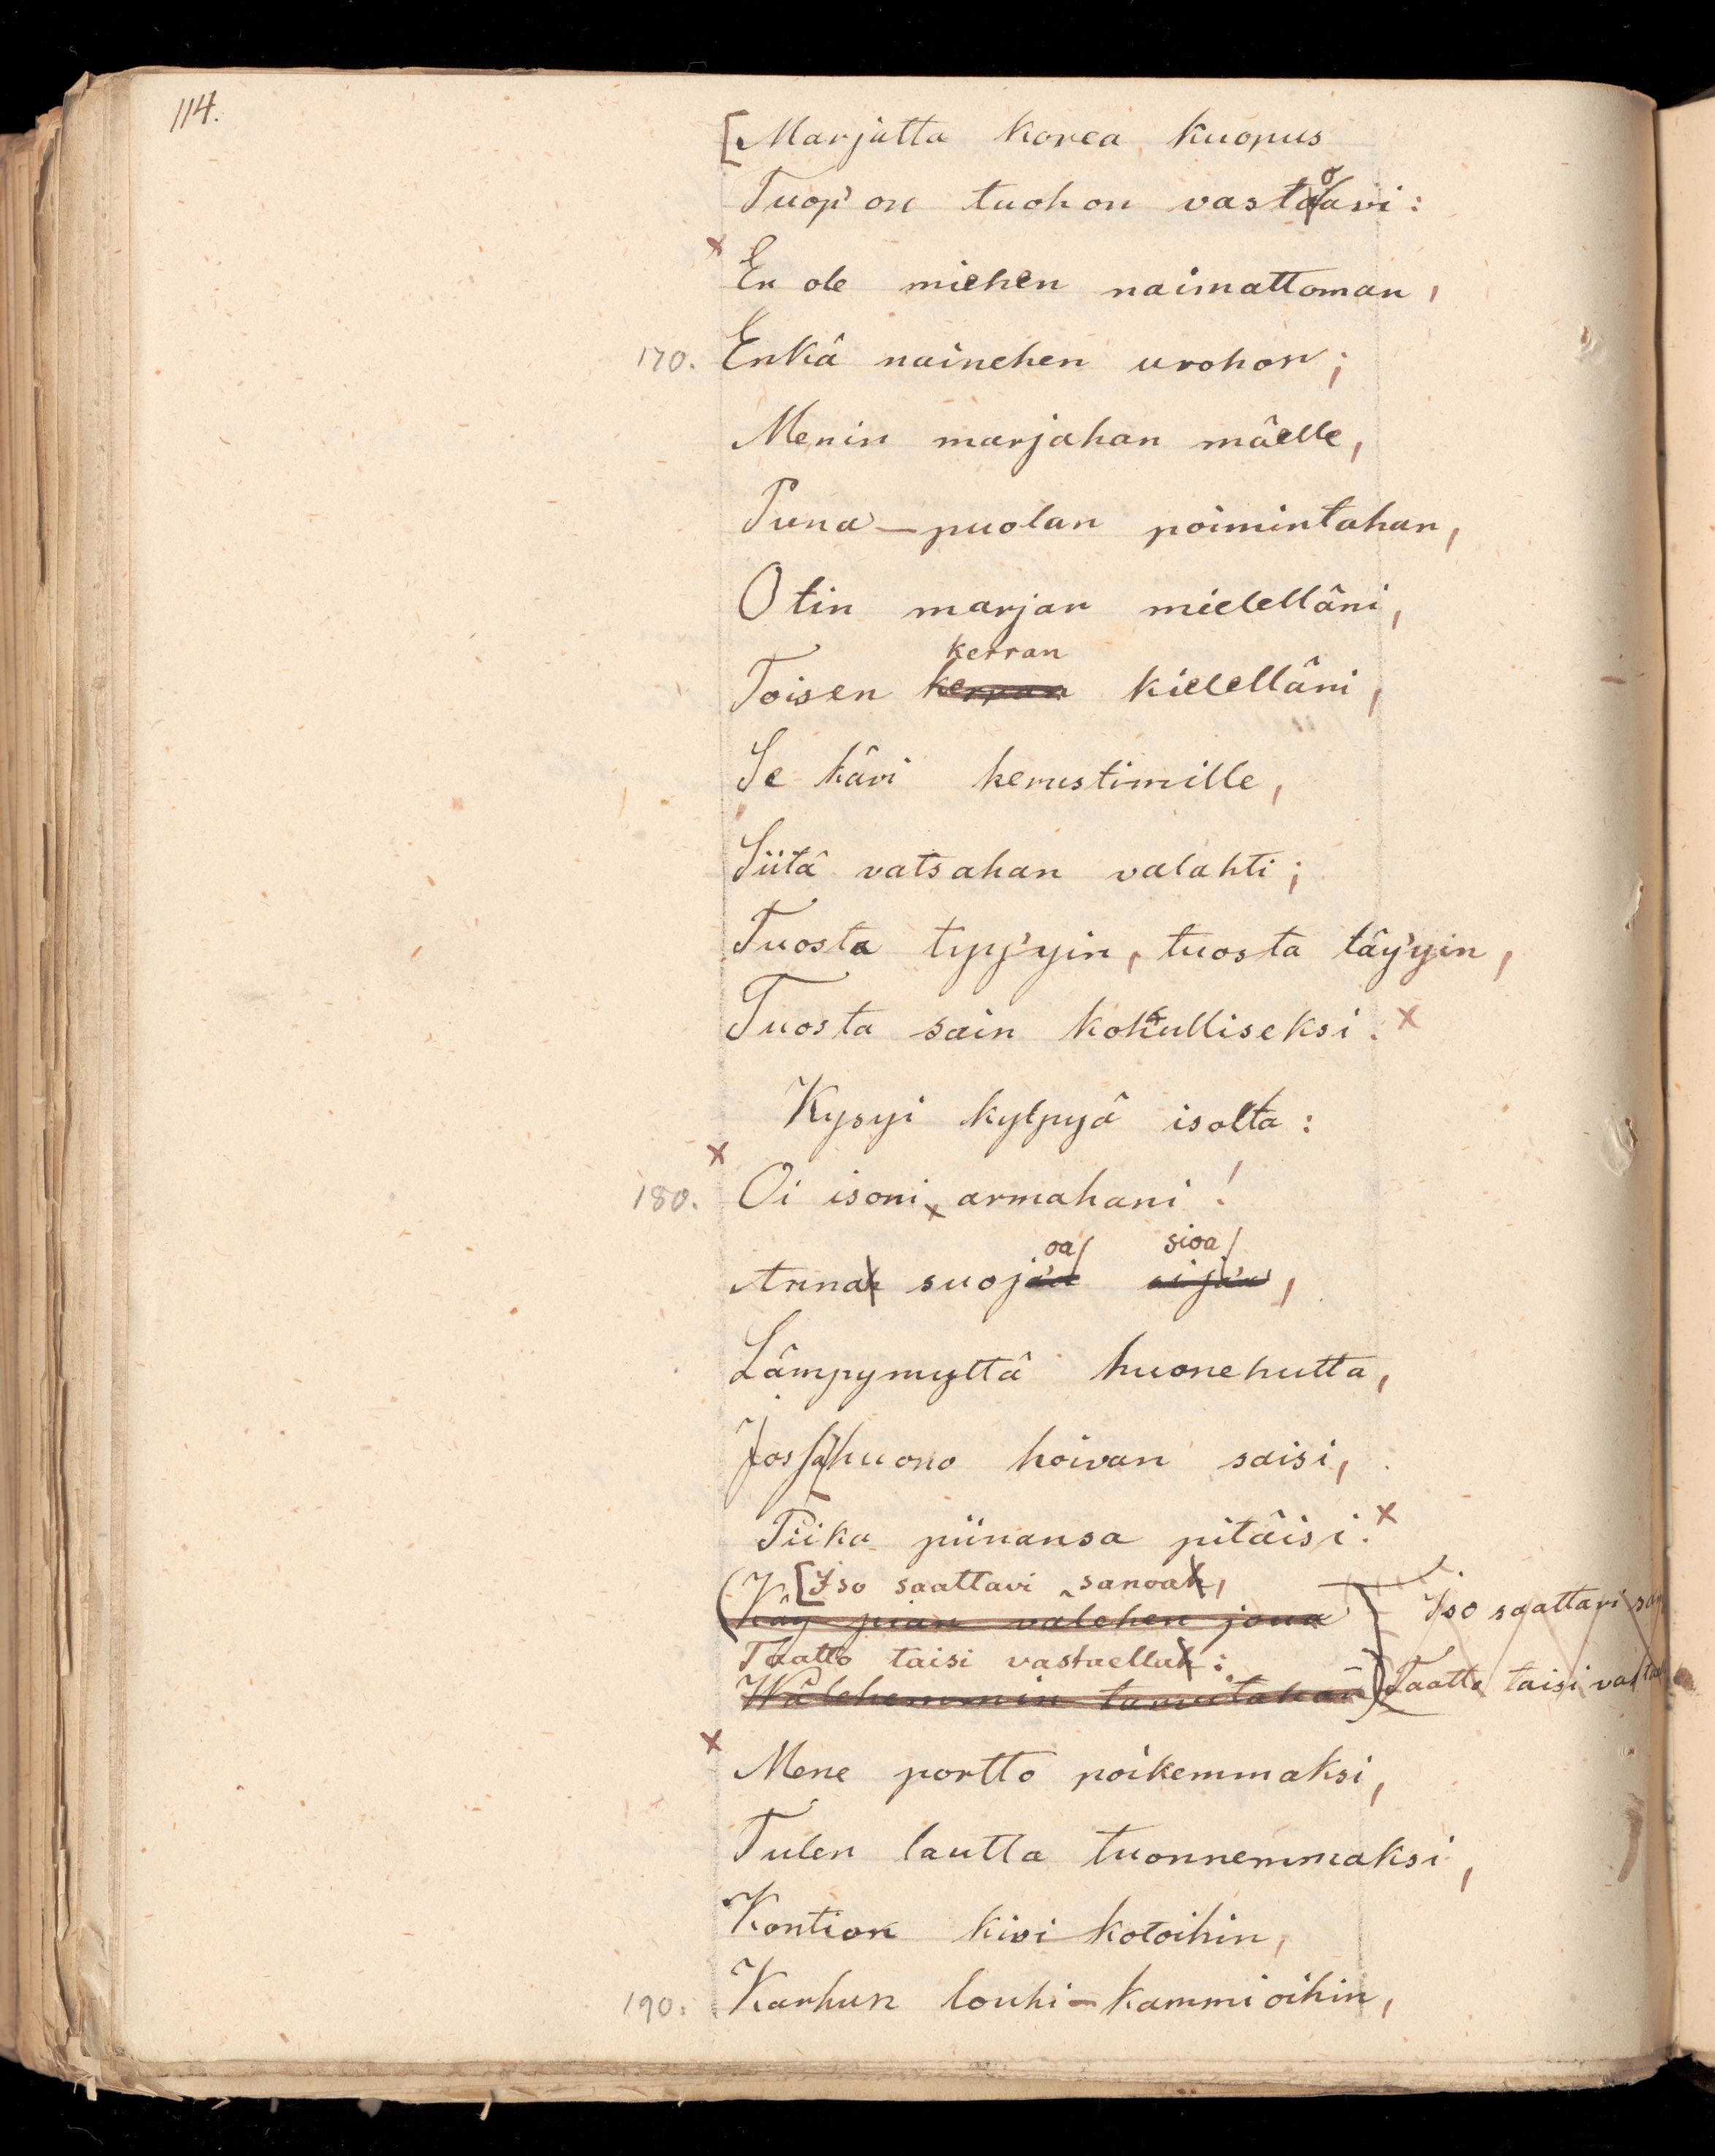 114.
[Marjatta korea kuopus
Tuop' on tuohon vastoavi:
x
En ole miehen naimattoman,
170. Enkâ nainehen urohon;
Menin marjahan mâelle,
Puna-puolan poimintahan,
Otin marjan mielellâni,
kerran
Toisen kerran kielellâni,
Se kâvi kerustimille,
Siitâ vatsahan valahti;
Tuosta tyy'yin, tuosta tây'yin,
Tuosta sain kohulliseksi. x
Kysyi kylpyâ isolta:
x
180. Oi isoni x armahani!
oa/ sioa/
Anna suoja'a sija'a,
Lâmpymyttâ huonehutta,
Jossa huono hoivan saisi,
Piika piinansa pitâisi. x
[Iso saattavi sanoa,
(Kây pian vâlehen joua Iso saattavi
Taatto taisi vastaella:
Wâlehemmin ) Taatto taisi
x
Mene portto poikemmaksi,
Tulen lautta tuonnemmaksi,
Kontion kivi-kotoihin,
190. Karhun louhi-kammioihin,